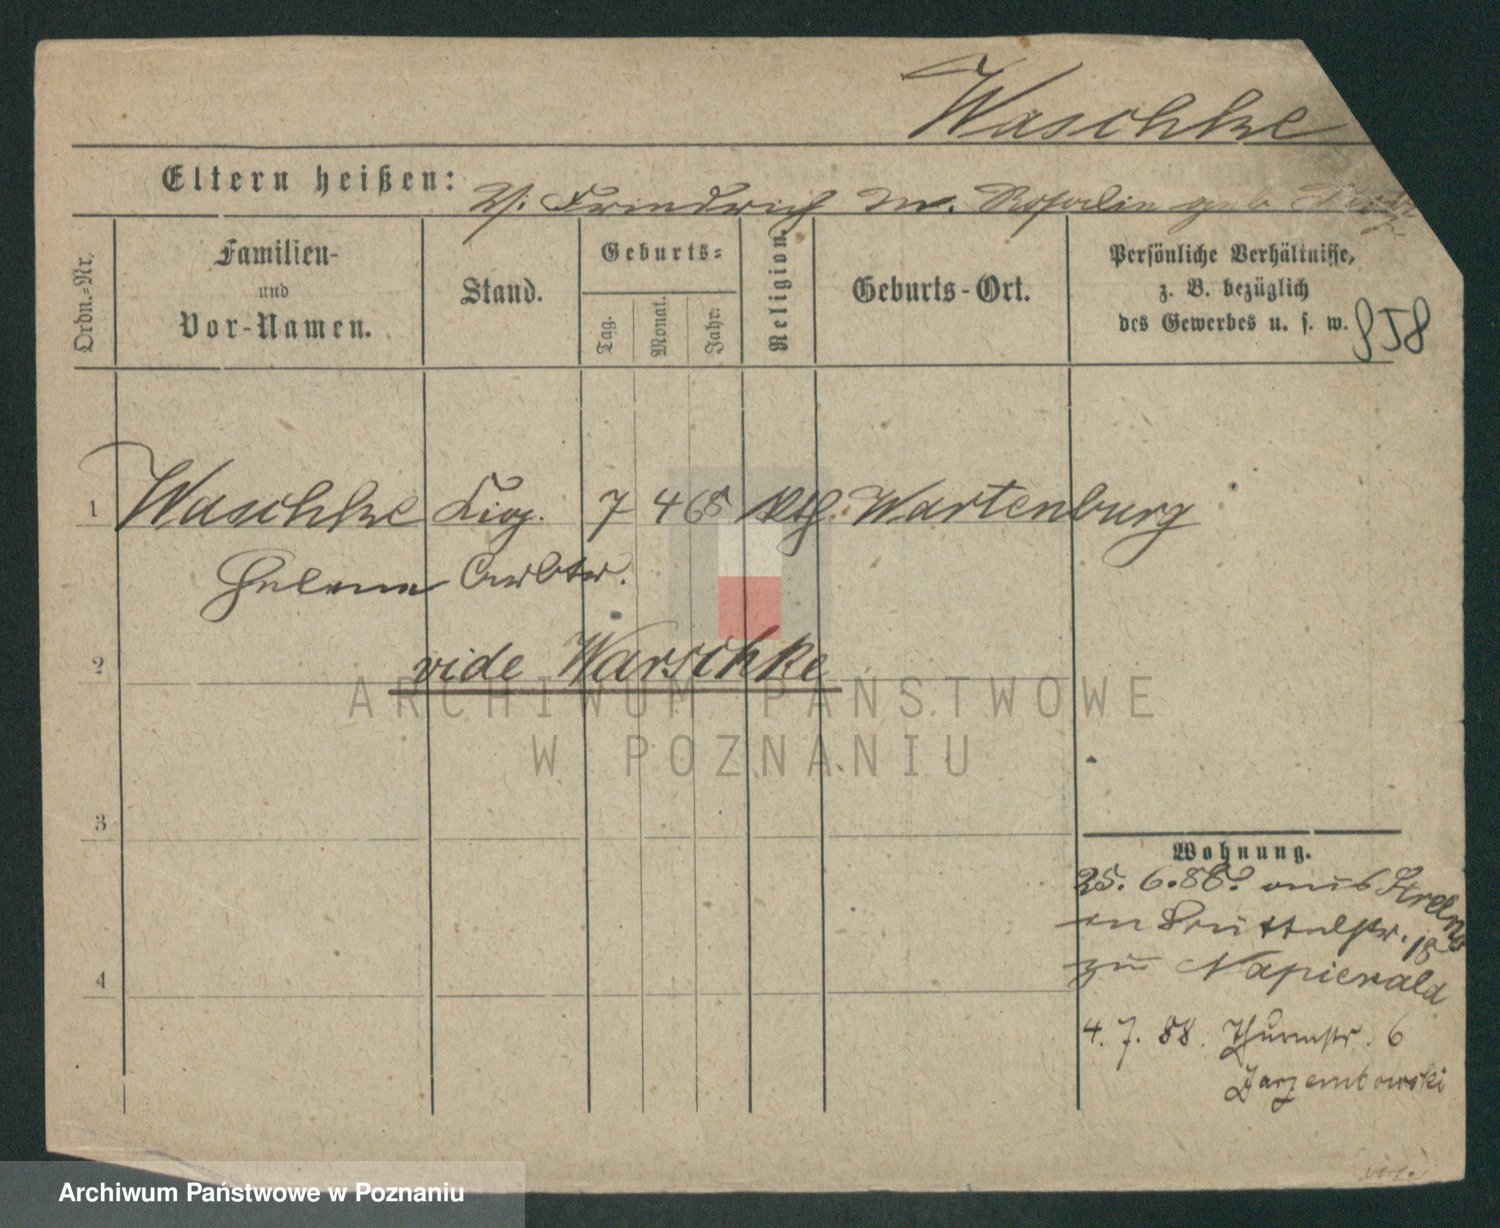 Waschke
Eltern heißen: V: Friedrich M. Rosalie geb
Ordn.-Nr.
Familien-
und
Vor-Namen.
Stand.
Geburts-
Tag.
Monat.
Jahr.
Religion.
Geburts-Ort.
Persönliche Verhältnisse,
z. B. bezüglich
des Gewerbes u. s. w.
958
1 Waschke 7 4 68 kth Wartenburg
Helene Arbtr.
vide Warschke
2
3
4
Wohnung.
25. 6. 88. aus Strelno
zu Napierald
4. 7. 88. Thurmstr. 6
Jarzembowski
ARCHIWUM PAŃSTWOWE
W POZNANIU
Archiwum Państwowe w Poznaniu